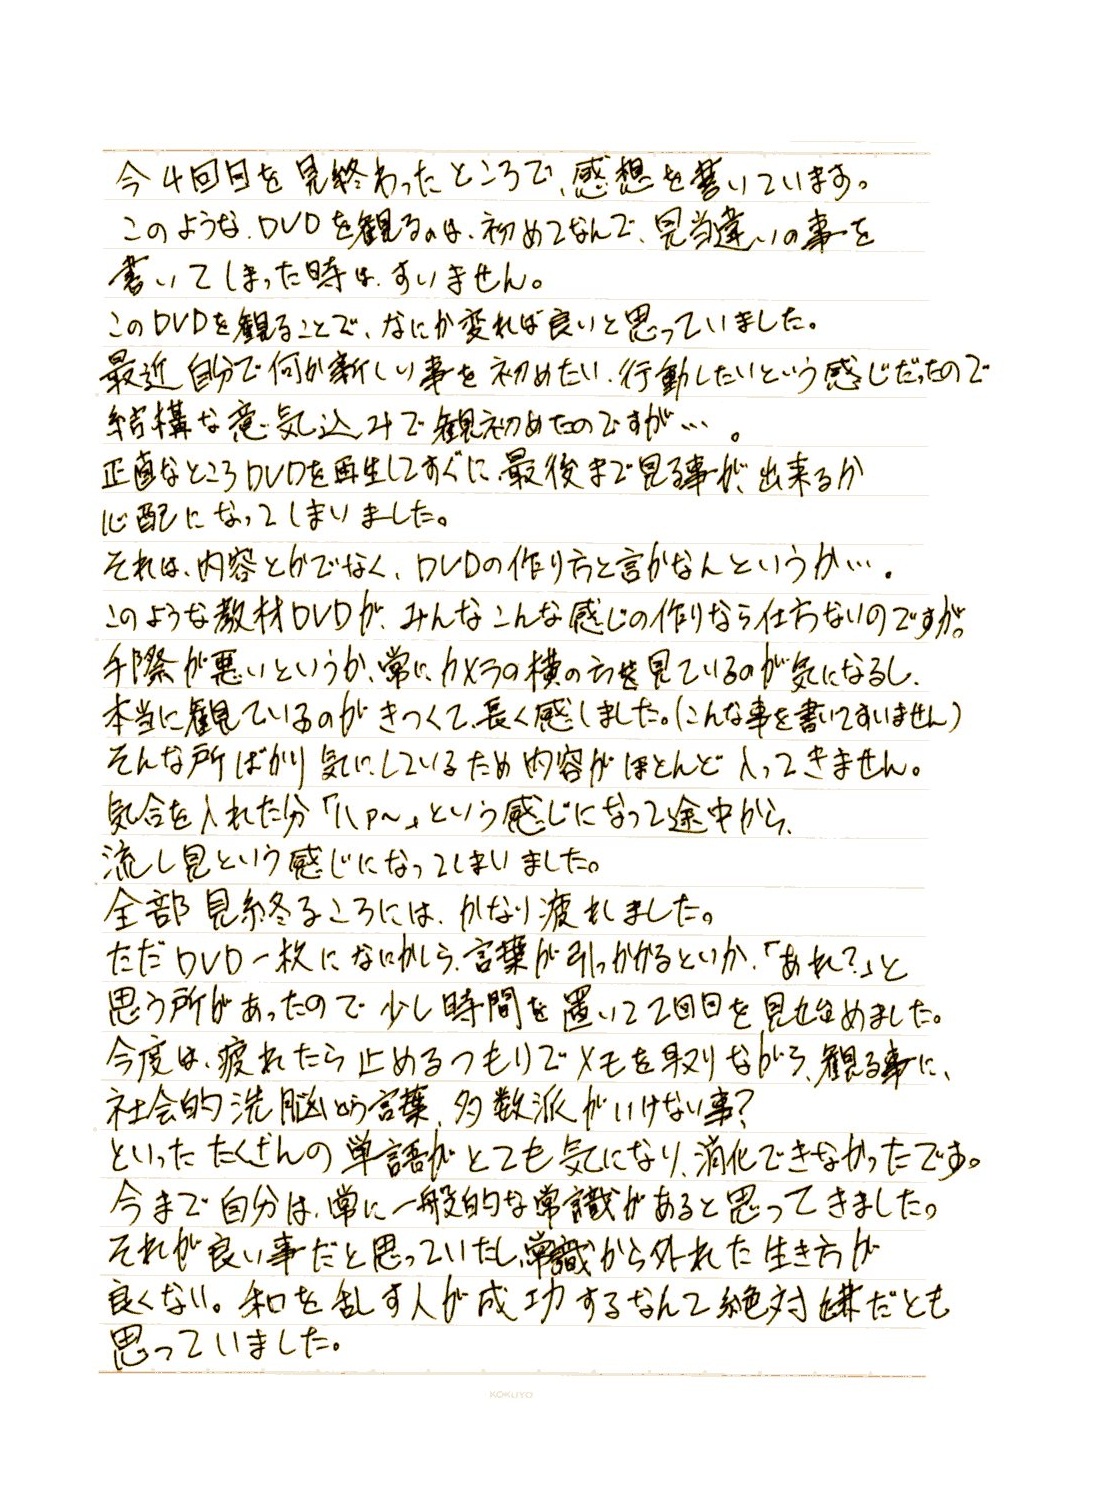 今4回目を見終わったところで、感想を書いています。
このような、DVDを観るのは、初めてなんで、見当違いの事を
書いてしまった時は、すいません。
このDVDを観ることで、なにか変れば良いと思っていました。
最近自分で何か新しい事を初めたい、行動したいという感じだったので
結構な意気込みで観初めたのですが…。
正直なところDVDを再生してすぐに、最後まで見る事が、出来るか
心配になってしまいました。
それは、内容とかでなく、DVDの作り方と言かなんというか…。
このような教材DVDが、みんなこんな感じの作りなら仕方ないのですが。
手際が悪いというか、常に、カメラの横の方を見ているのが気になるし、
本当に観ているのがきつくて、長く感じました。(こんな事を書いてすいません)
そんな所ばかり気にしているため内容がほとんど入ってきません。
気合を入れた分「ハァ〜」という感じになって途中から、
流し見という感じになってしまいました。
全部見終るころには、かなり疲れました。
ただDVD一枚になにかしら、言葉が引っかかるといか、「あれ?」と
思う所があったので少し時間を置いて2回目を見始めました。
今度は、疲れたら止めるつもりでメモを取りながら、観る事に、
社会的洗脳という言葉、多数派がいけない事?
といったたくさんの単語がとても気になり、消化できなかったです。
今まで自分は、常に一般的な常識があると思ってきました。
それが良い事だと思っていたし、常識から外れた生き方が
良くない。和を乱す人が成功するなんて絶対嫌だとも
思っていました。
KOKUYO